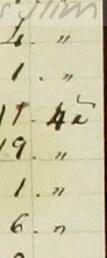 4 . "
1 . "
11 . 4a
19 . "
1 . "
6 . "